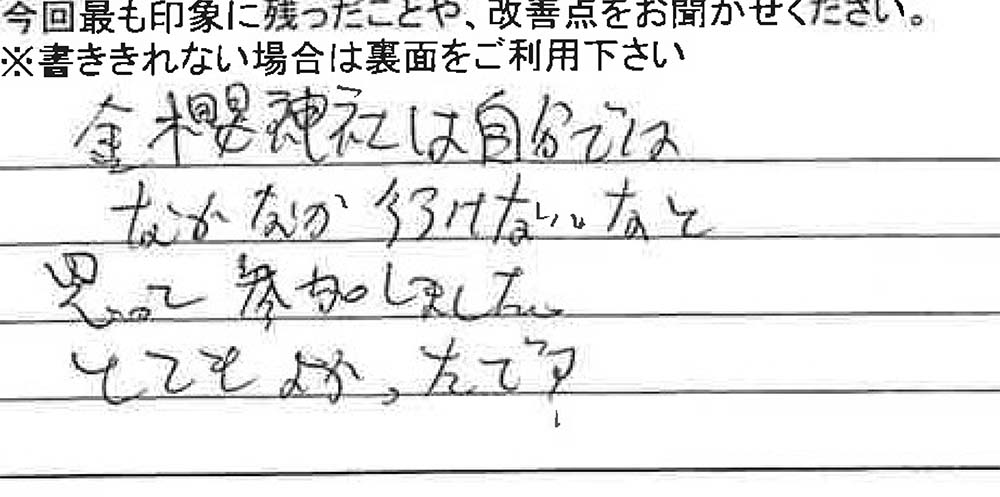 今回最も印象に残ったことや、改善点をお聞かせください。
※書ききれない場合は裏面をご利用下さい
金櫻神社は自分では
なかなか行けないなと
思って参加しました。
とてもよかったです